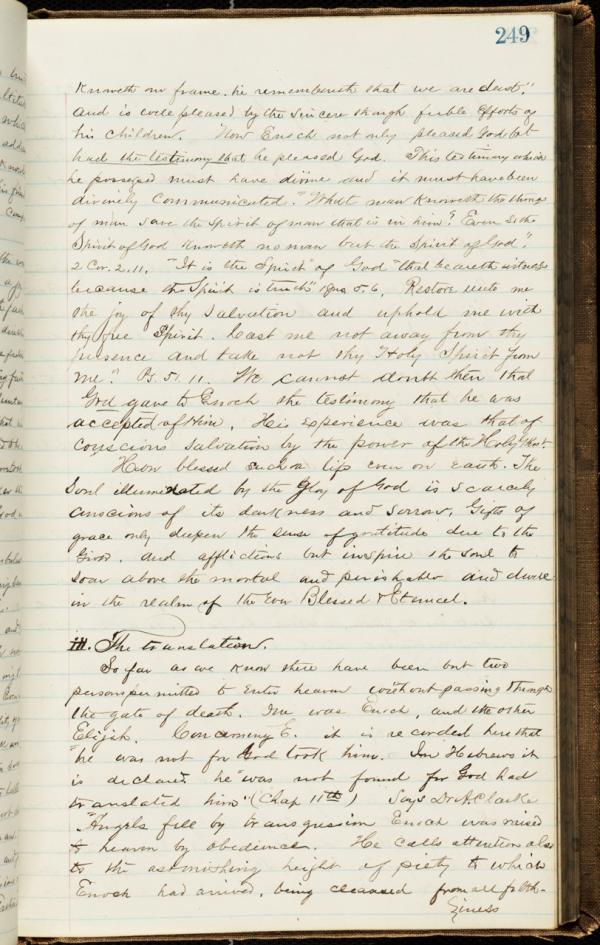 249
knoweth our frame. he remembereth that we are dust,"
and is well pleased by the sincere though feeble efforts of
his children. Now Enoch not only pleased God but
had the testimony that he pleased God. This testimony which
he possessed must have divine and it must have been
divinely communicated. "What man knoweth the things
of man save the spirit of man that is in him? Even so the
Spirit of God knoweth no man but the Spirit of God".
2 Cor. 2.11. "It is the Spirit" of God "that beareth witness
because the Spirit is truth" 1 Jno 5.6. Restore unto me
the joy of thy salvation and uphold me with
thy free Spirit. Cast me not away from thy
presence and take not thy Holy Spirit from
me". Ps. 51. 11. We cannot doubt then that
God gave to Enoch the testimony that he was
accepted of Him. His experience was that of
conscious salvation by the power of the Holy Ghost
How blessed such a life even on earth. The
Soul illuminated by the Glory of God is scarcely
conscious of its darkness and sorrow. Gifts of
grace only deepen the sense of gratitude due to the
Giver. And afflictions but inspire the soul to
soar above the mortal and perishable and dwell
in the realm of the Ever Blessed & Eternal.
III. The translation.
So far as we know there have been but two
persons permitted to enter heaven without passing through
the gate of death. One was Enoch, and the other
Elijah. Concerning E. it is recorded here that
"he was not for God took him. In Hebrews it
is declared he "was not found for God had
translated him" (Chap 11th) Says Dr A. Clarke
"Angels fell by transgression Enoch was raised
to heaven by obedience. He calls attention also
to the astonishing height of piety to which
Enoch had arrived, being cleansed from all filth-
iness